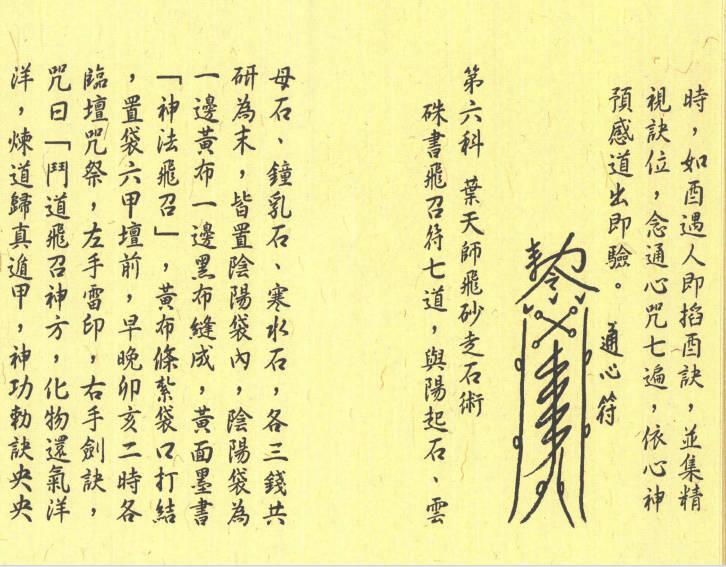 時，如酉遇人即掐酉訣，並集精
視訣位，念通心咒七遍，依心神
預感道出即驗。
通心符
第六科 葉天師飛砂走石術
硃書飛召符七道，與陽起石、雲
母石、鐘乳石、寒水石，各三錢共
研為末，皆置陰陽袋內，陰陽袋為
一邊黃布一邊黑布縫成，黃面墨書
「神法飛召」，黃布條紮袋口打結
，置袋六甲壇前，早晚卯亥二時各
臨壇咒祭，左手雷印，右手劍訣，
咒曰「鬥道飛召神方，化物還氣洋
洋，煉道歸真遁甲，神功勅訣央央